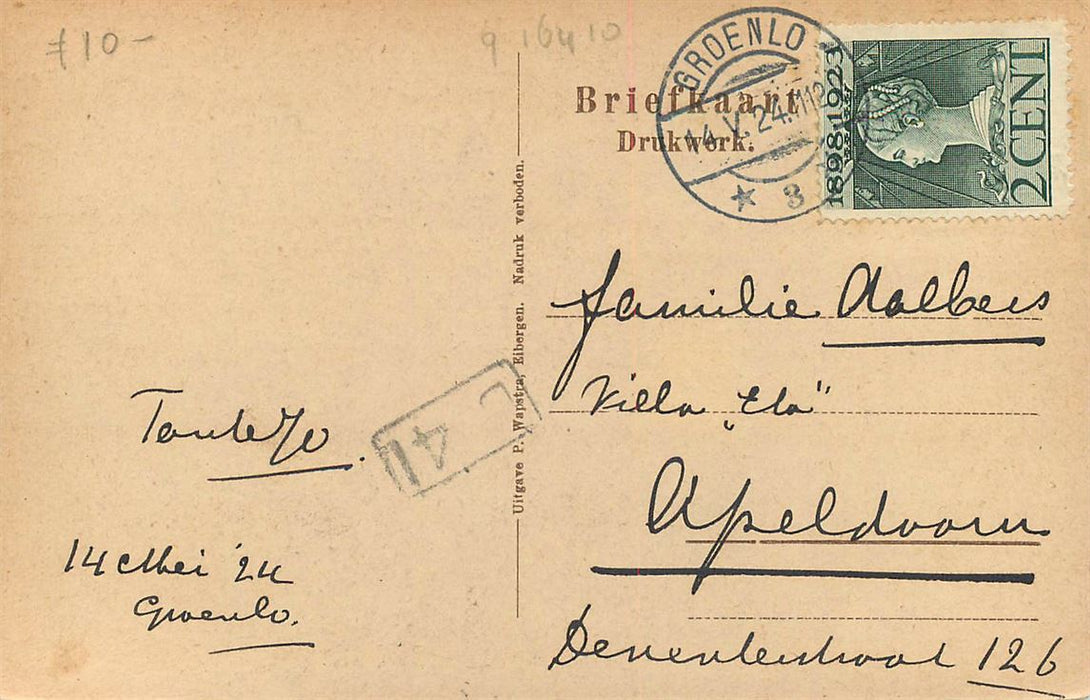 ƒ10-
916410
GROENLO
14.V.24.
3
1898-1923
2 CENT
Briefkaart
Drukwerk.
Uitgave P. Wapstra, Eibergen. Nadruk verboden.
Familie Aalbers
Villa „Ela"
Apeldoorn
Deventerstraat 126
Tante Jo.
14 Mei '24
Groenlo.
41